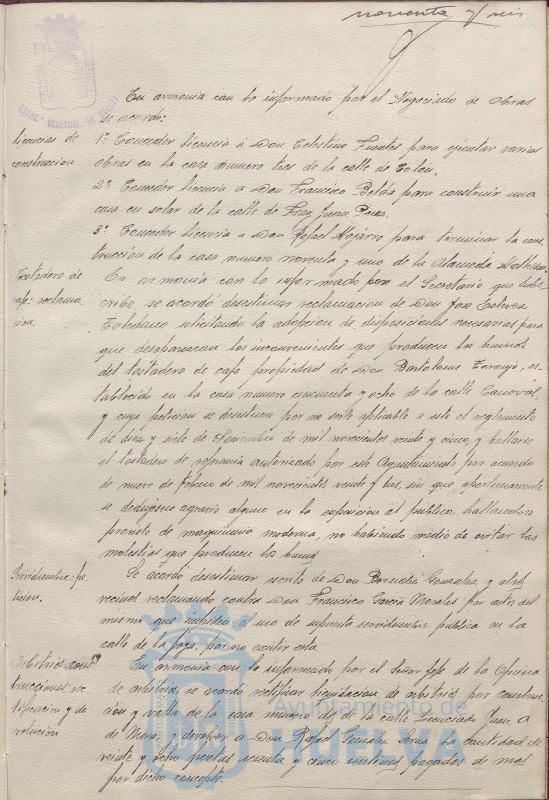 noventa y seis
En armonia con lo informado por el Negociado de Obras
se acordó:
licencias de
construccion
1º Conceder licencia á Don Celestino Fuentes para ejecutar varias
obras en la casa número tres de la calle de Colón.
2º Conceder licencia á Don Francisco Belda para construir una
casa en solar de la calle de Fray Juan Perez.
3º Conceder licencia á Don Rafael Mojarro para terminar la cons-
trucción de la casa numero noventa y uno de la Alameda
Tostadero de
cafe: reclama
cion.
En armonia con lo informado por el Secretario que subs-
cribe, se acordó desestimar reclamacion de Don Jose Esteves
Toledano solicitando la adopcion de disposiciones necesarias para
que desaparezcan los inconvenientes que producen los humos
del tostadero de café propiedad de Don Bartolome Toronjo, es-
tablecido en la casa numero cincuenta y ocho de la calle Canovas,
y cuya peticion se desestima por no serle aplicable a este el reglamento
de diez y siete de Noviembre de mil novecientos veinte y cinco, y hallarse
el tostadero de referencia autorizado por este Ayuntamiento por acuerdo
de nueve de febrero de mil novecientos veinte y tres, sin que oportunamente
se dedujese agravio alguno en la exposicion al publico, hallandose
provisto de maquinaria moderna, no habiendo medio de evitar las
molestias que producen los humos
Servidumbre: pe-
ticion.
Se acordó desestimar escrito de Don Bernabé Gonzalez y otros
vecinos reclamando contra Don Francisco Garcia Morales por actos del
mismo que impiden el uso de supuesta servidumbre publica en la
calle de la Joya, por no existir esta
Arbitrios cons-
trucciones rec-
tificacion y de-
volución
En armonia con lo informado por el Señor Jefe de la Oficina
de arbitrios, se acordo rectificar liquidacion de arbitrios por construc-
cion y valla de la casa numero dos de la calle Licenciado Juan A
de Mora, y devolver a Don Rafael Gonzalez la cantidad de
veinte y ocho pesetas sesenta y cinco centimos pagadas de mas
por dicho concepto.
Ayuntamiento de
HUELVA